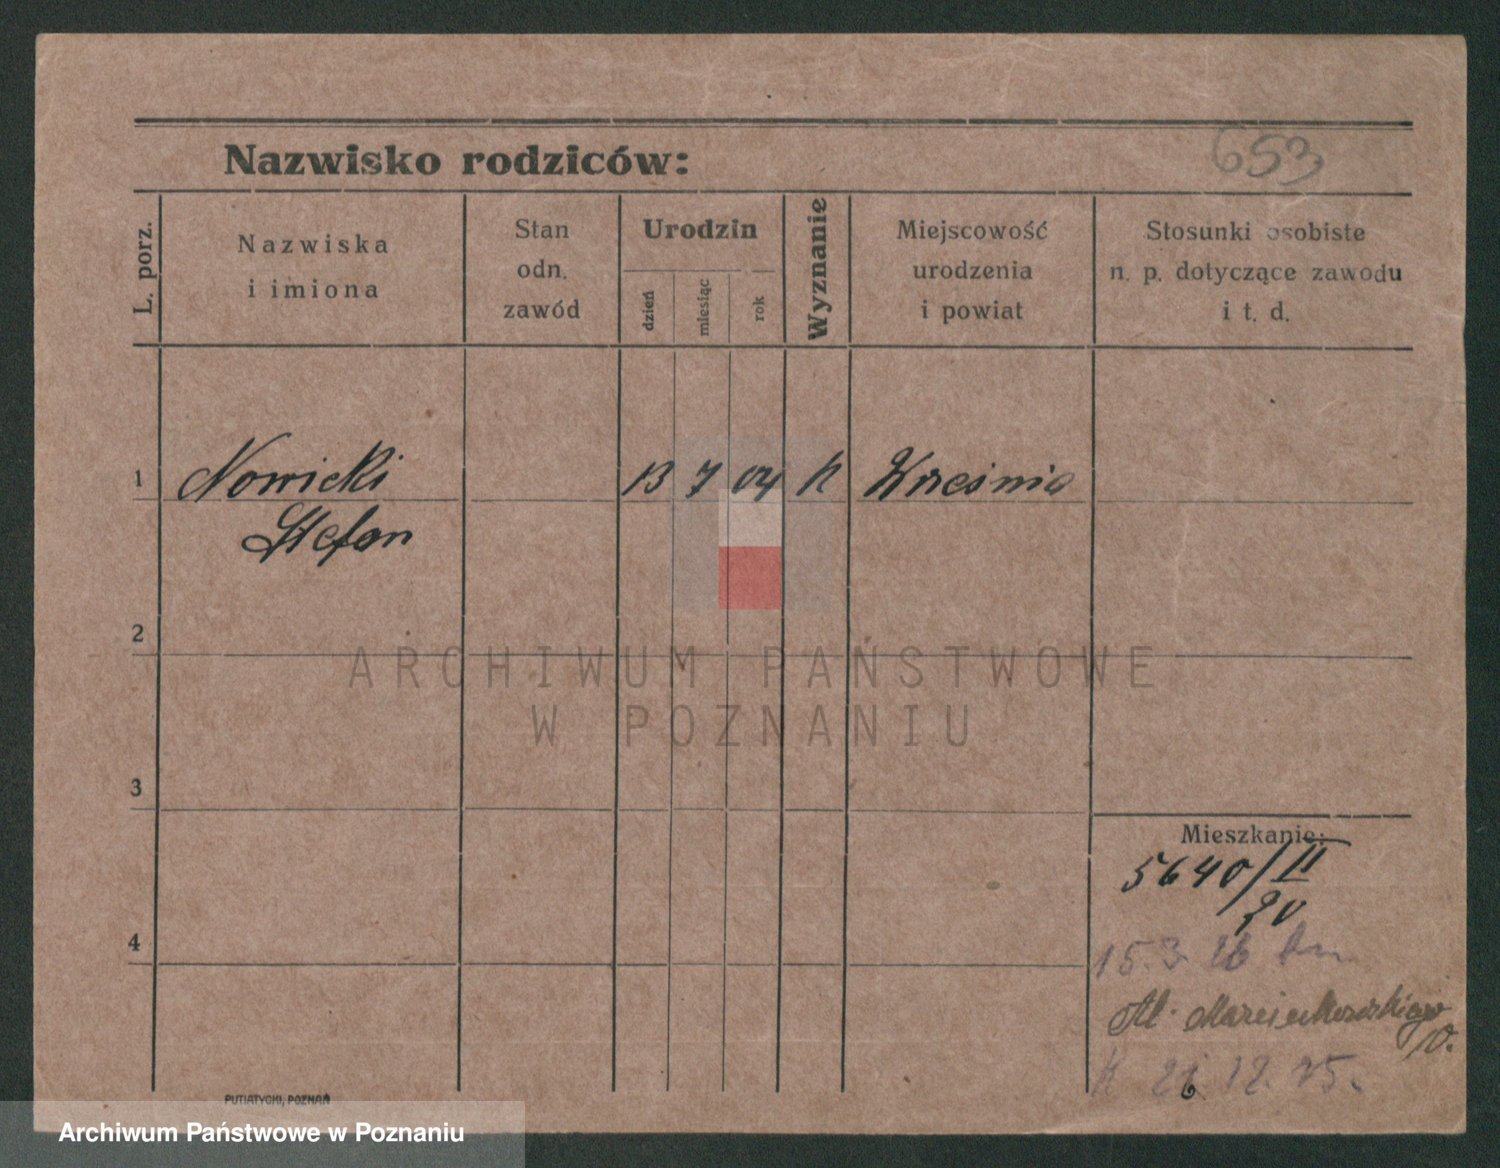 653
Nazwisko rodziców:
L. porz.
Nazwiska
i imiona
Stan
odn.
zawód
Urodzin
dzień
miesiąc
rok
Wyznanie
Miejscowość
urodzenia
i powiat
Stosunki osobiste
n. p. dotyczące zawodu
i t. d.
1 Nowicki 13 7 04 k Września
Stefan
2
ARCHIWUM PAŃSTWOWE
W POZNANIU
3
Mieszkanie:
5640/II
20
4
15.3.26
Al. Marcinkowskiego
K 21.12.25.
PUTIATYCKI, POZNAŃ
Archiwum Państwowe w Poznaniu